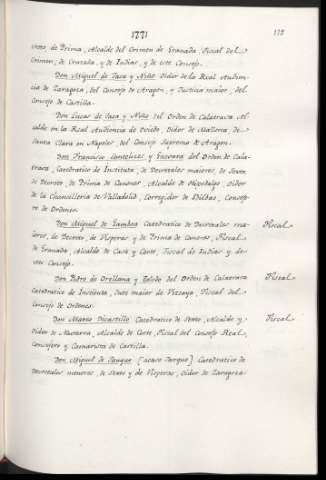 1771
175
cretos, de Prima, Alcalde del Crimen de Granada, Fiscal del
Crimen, de Cruzada, y de Indias, y de este Consejo.
Don Miguel de Jaca y Niño Oidor de la Real Audien-
cia de Zaragoza, del Consejo de Aragon, y Justicia maior, del
Consejo de Castilla.
Don Lucas de Jaca y Niño del Orden de Calatrava, Al-
calde en la Real Audiencia de Oviedo, Oidor de Mallorca, de
Santa Clara en Napoles, del Consejo Supremo de Aragon.
Don Francisco y Guevara del Orden de Cala-
trava, Catedratico de Instituta, de Decretales maiores, de Sexto,
de Decreto, de Prima de Canones, Alcalde de Hijosdalgo, Oidor
de la Chancilleria de Valladolid, Corregidor de Bilbao, Conseje-
ro de Ordenes.
Don Miguel de Gamboa Catedratico de Decretales ma- Fiscal
iores, de Decreto, de Visperas y de Prima de Canones, Fiscal
de Granada, Alcalde de Casa y Corte, Fiscal de Indias y de
este Consejo.
Don Pedro de Orellana y Toledo del Orden de Calatrava Fiscal
Catedratico de Instituta, Juez maior de Vizcaya, Fiscal del
Consejo de Ordenes.
Don Mateo Dicastillo Catedratico de Sexto, Alcalde y Fiscal
Oidor de Navarra, Alcalde de Corte, Fiscal del Consejo Real,
Consejero y Camarista de Castilla.
Don Miguel de Jauque [acaso Jaurque] Catedratico de
Decretales menores, de Sexto y de Visperas, Oidor de Zaragoza